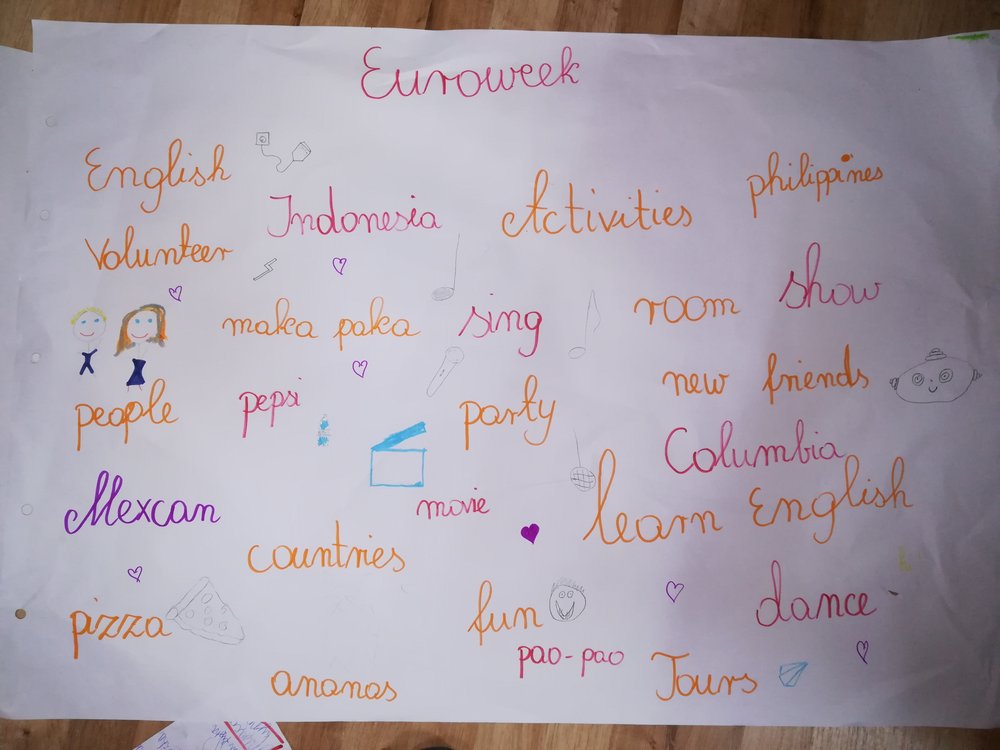 Euroweek
English
Indonesia
Activities
philippines
Volunteer
maka paka
sing
room
show
people
pepsi
party
new friends
Columbia
Mexcan
movie
learn English
countries
pizza
fun
dance
pao-pao
ananas
Tours